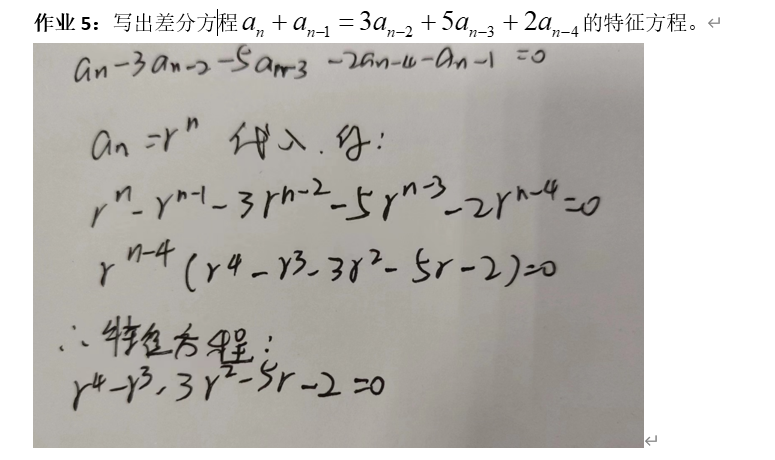 作业 5：写出差分方程 aₙ + aₙ₋₁ = 3aₙ₋₂ + 5aₙ₋₃ + 2aₙ₋₄ 的特征方程。
aₙ - 3aₙ₋₂ - 5aₙ₋₃ - 2aₙ₋₄ - aₙ₋₁ = 0
aₙ = rⁿ 代入. 得:
rⁿ - rⁿ⁻¹ - 3rⁿ⁻² - 5rⁿ⁻³ - 2rⁿ⁻⁴ = 0
rⁿ⁻⁴ (r⁴ - r³ - 3r² - 5r - 2) = 0
∴ 特征方程:
r⁴ - r³ - 3r² - 5r - 2 = 0